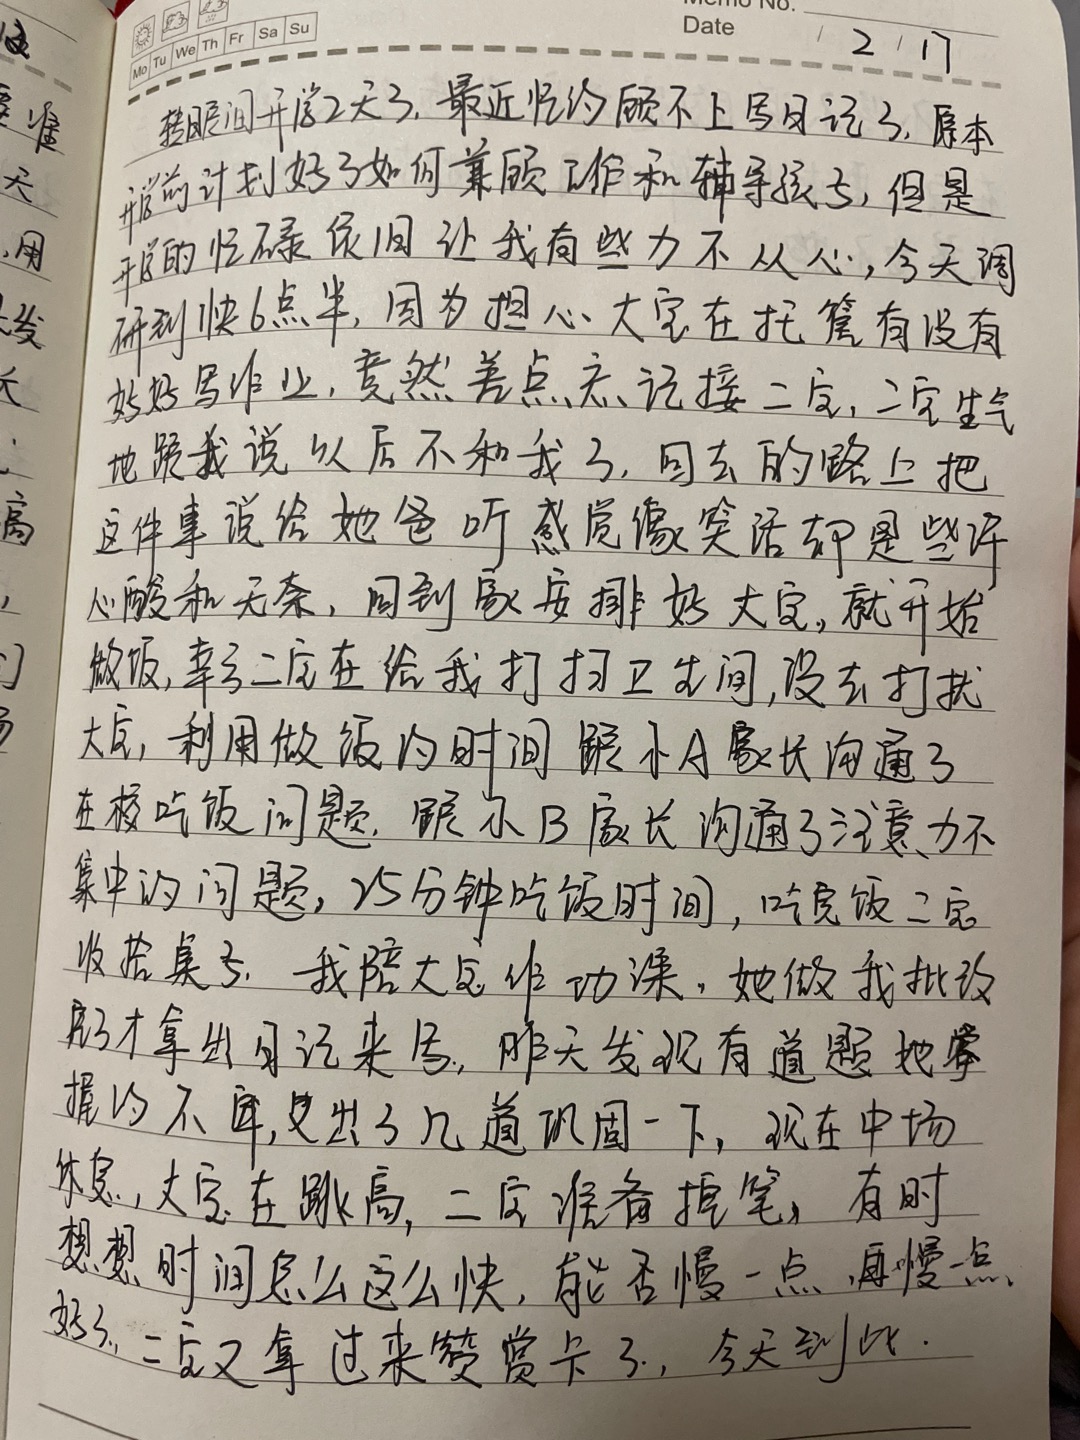 Memo No.
Date / 2 / 17
Mo Tu We Th Fr Sa Su
转眼间开学2天了，最近忙的顾不上写日记了，原本
开学前计划好了如何兼顾工作和辅导孩子，但是
开学的忙碌依旧让我有些力不从心，今天调
研到快6点半，因为担心大宝在托管有没有
好好写作业，竟然差点忘记接二宝，二宝生气
地跟我说以后不和我了，回去的路上把
这件事说给她爸听感觉像笑话却是些许
心酸和无奈，回到家安排好大宝，就开始
做饭，幸亏二宝在给我打扫卫生间，没去打扰
大宝，利用做饭的时间跟小A家长沟通了
在校吃饭问题，跟小B家长沟通了注意力不
集中的问题，25分钟吃饭时间，吃完饭二宝
收拾桌子，我陪大宝作功课，她做我批改
完了才拿出日记来写，昨天发现有道题她掌
握的不牢，又出了几道巩固一下，现在中场
休息，大宝在跳高，二宝准备握笔，有时
想想时间怎么这么快，能否慢一点，再慢一点
好了，二宝又拿过来赞赏卡了，今天到此．